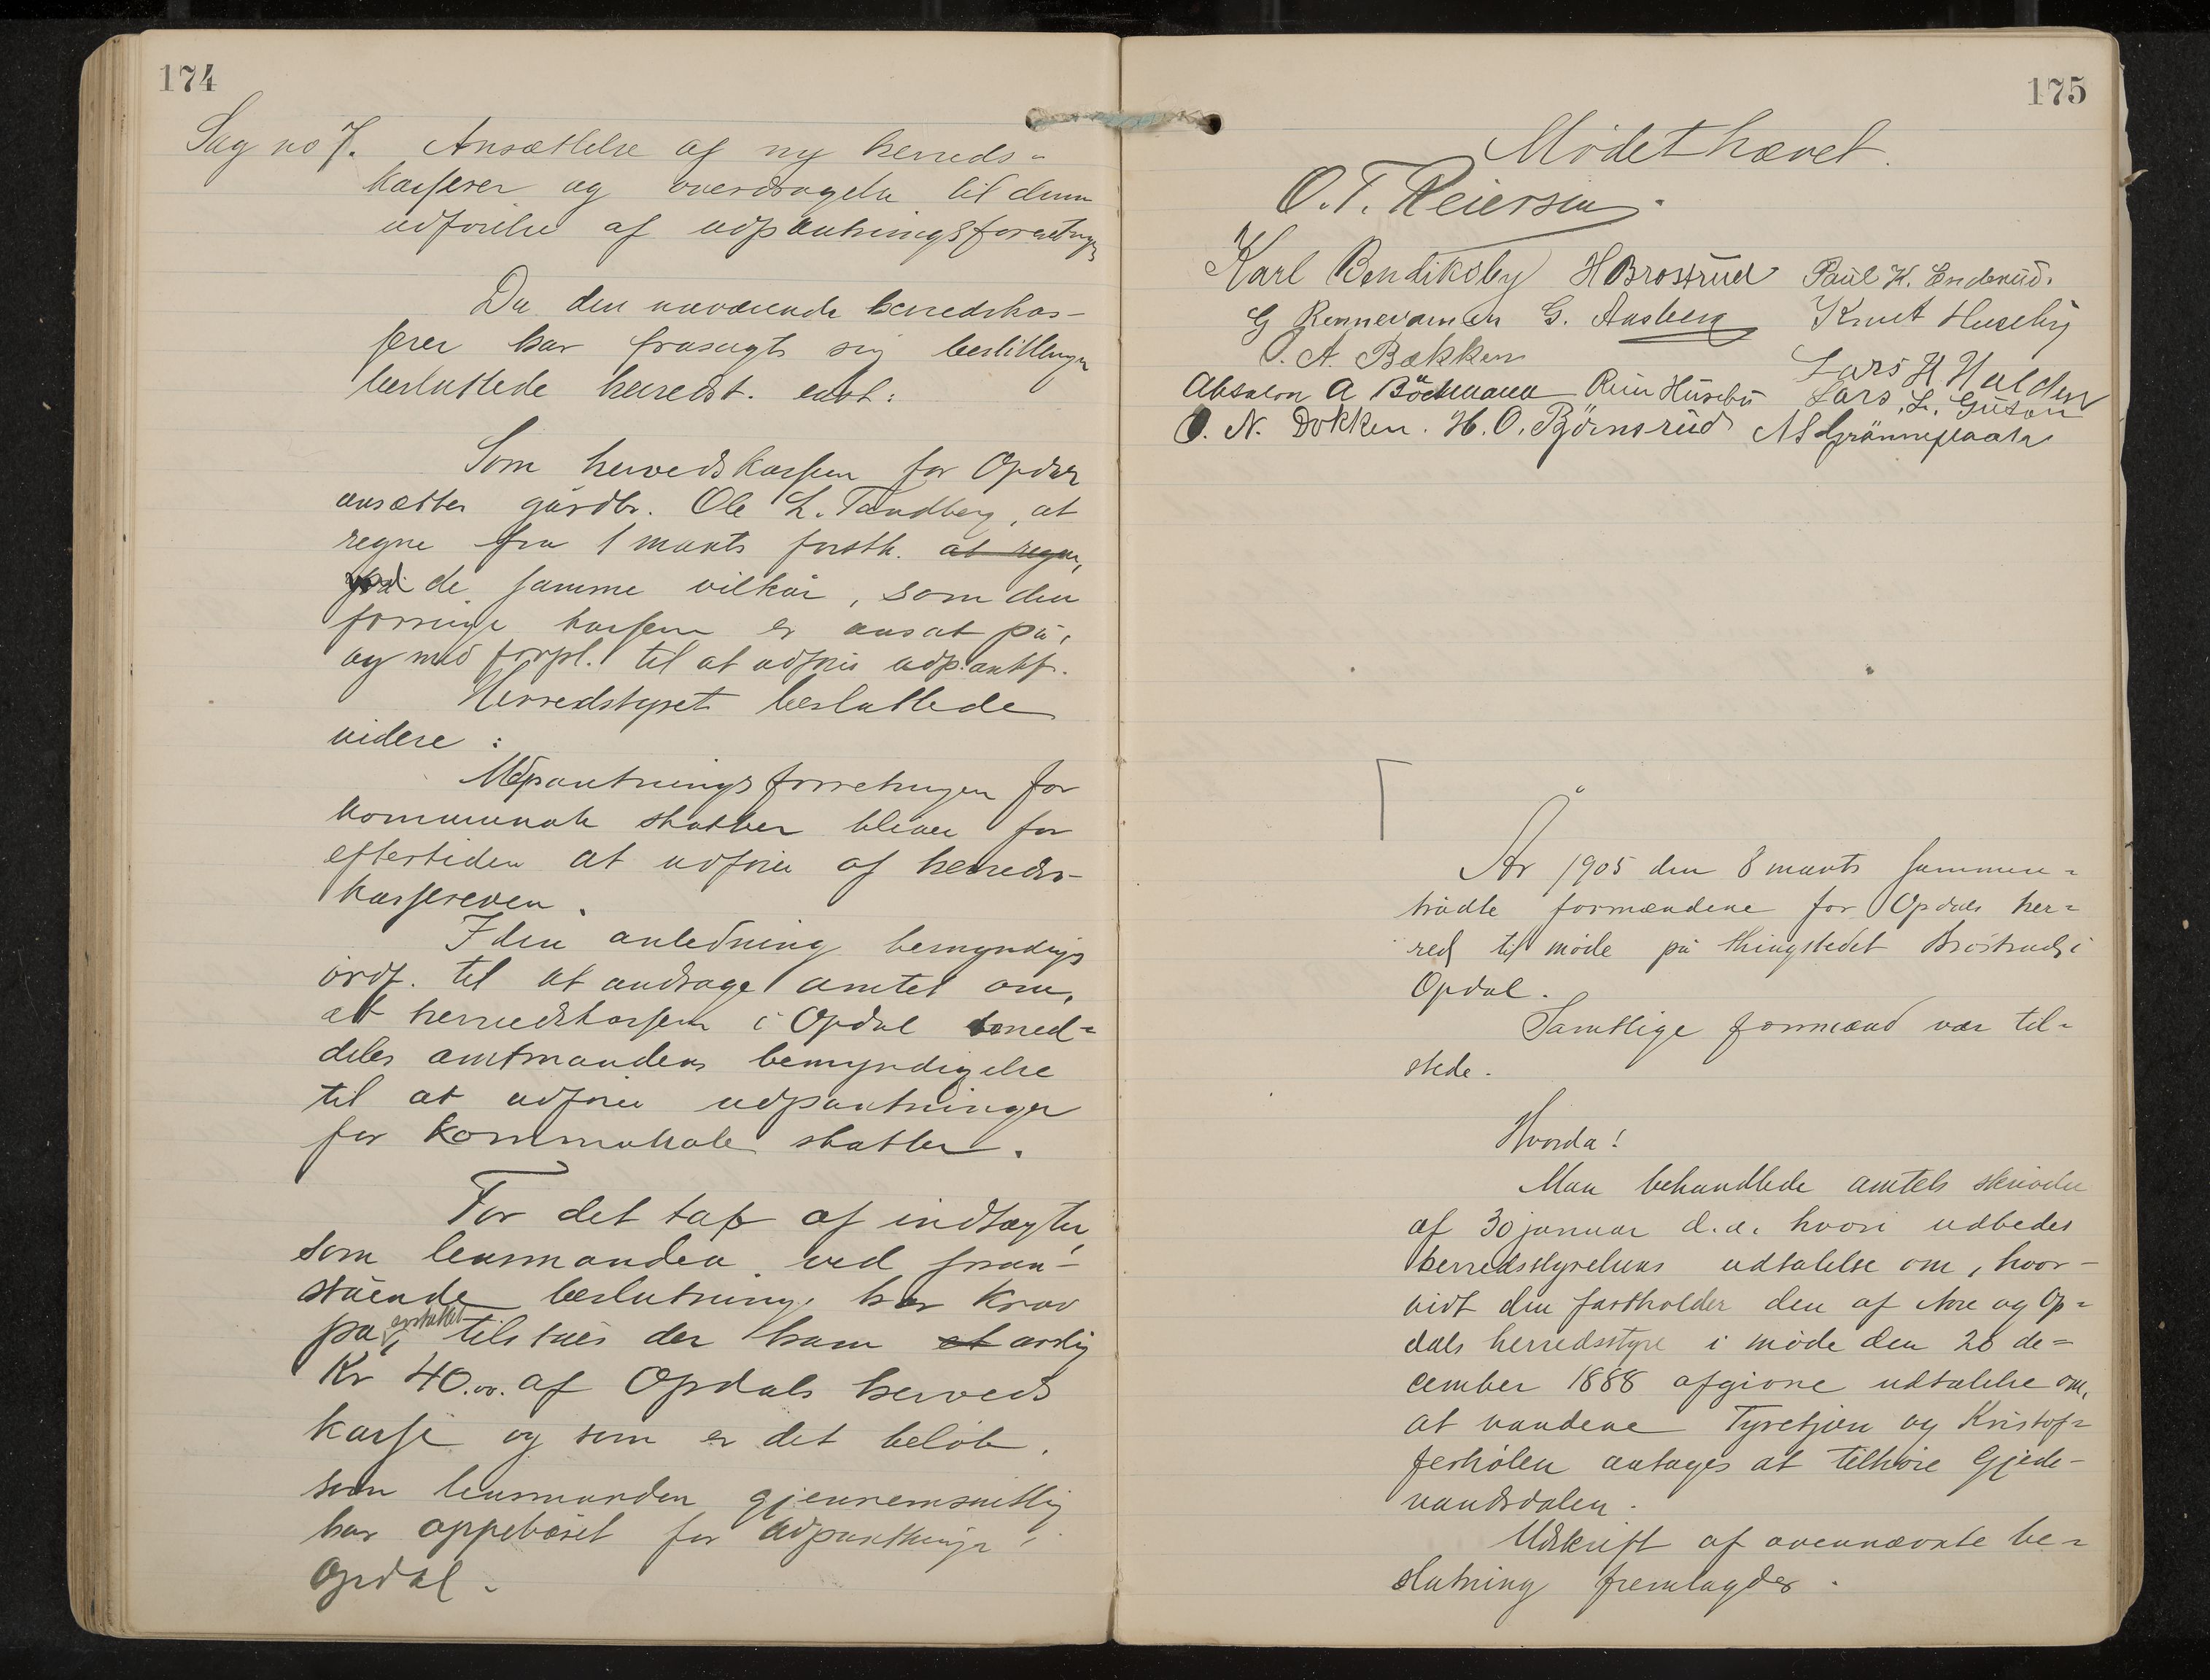 174
Sag no 7. Ansættelse af ny herreds-
kasserer og overdragelse til denne
udførelse af udpantningsforretninger
Da den nuværende herredskas-
serer har frasagt sig bestillingen
besluttede herredst. enst:
Som herredskasserer for Opdal
ansættes gårdbr. Ole L. Tandberg, at
regne fra 1 marts førstk. at regne,
på de samme vilkår, som den
forrige kasserer er ansat på,
og med forpl. til at udføre udpantf.
Herredstyret besluttede
videre:
Udpantningsforretninger for
kommunale skatter bliver for
eftertiden at udføre af herreds-
kassereren.
I den anledning bemyndiges
ordf. til at andrage amtet om,
at herredskasseren i Opdal med-
deles amtmandens bemyndigelse
til at udføre udpantninger
for kommunale skatter.
For det tap af indtægter,
som lensmanden ved foran-
stående beslutning har krav
på erstattet, tilståes der ham et årlig
Kr 40.00. af Opdals herreds
kasse og som er det beløb,
som lensmanden gjennemsnitlig
har oppebåret for udpantninger i
Opdal.
175
Mødet hævet.
O. T. Reiersen.
Karl Bendiksby H Brøstrud Paul K. Enderud.
G Rennevamen G. Aasberg Knut Huseby
O. A. Bækken Lars H Halden
Absalon A Böckmann Rein Huseby Lars L. Guton
O. N. Dokken. H. O. Björnsrud A S Gränneflaata
År 1905 den 8 marts sammen-
trådte formændene for Opdals her-
red til møde på thingstedet Brøstrud i
Opdal.
Samtlige formænd var til-
stede.
Hvorda!
Man behandlede amtets skrivelse
af 30 januar d. a. hvori udbedes
herredsstyrelsens udtalelse om, hvor-
vidt den fastholder den af Nore og Op-
dals herredsstyre i møde den 28 de-
cember 1888 afgivne udtalelse om,
at vandene Tyretjern og Kristof-
ferhølen antages at tilhøre Gjede-
vandsdalen.
Udskrift af ovennævnte be-
slutning fremlagdes.